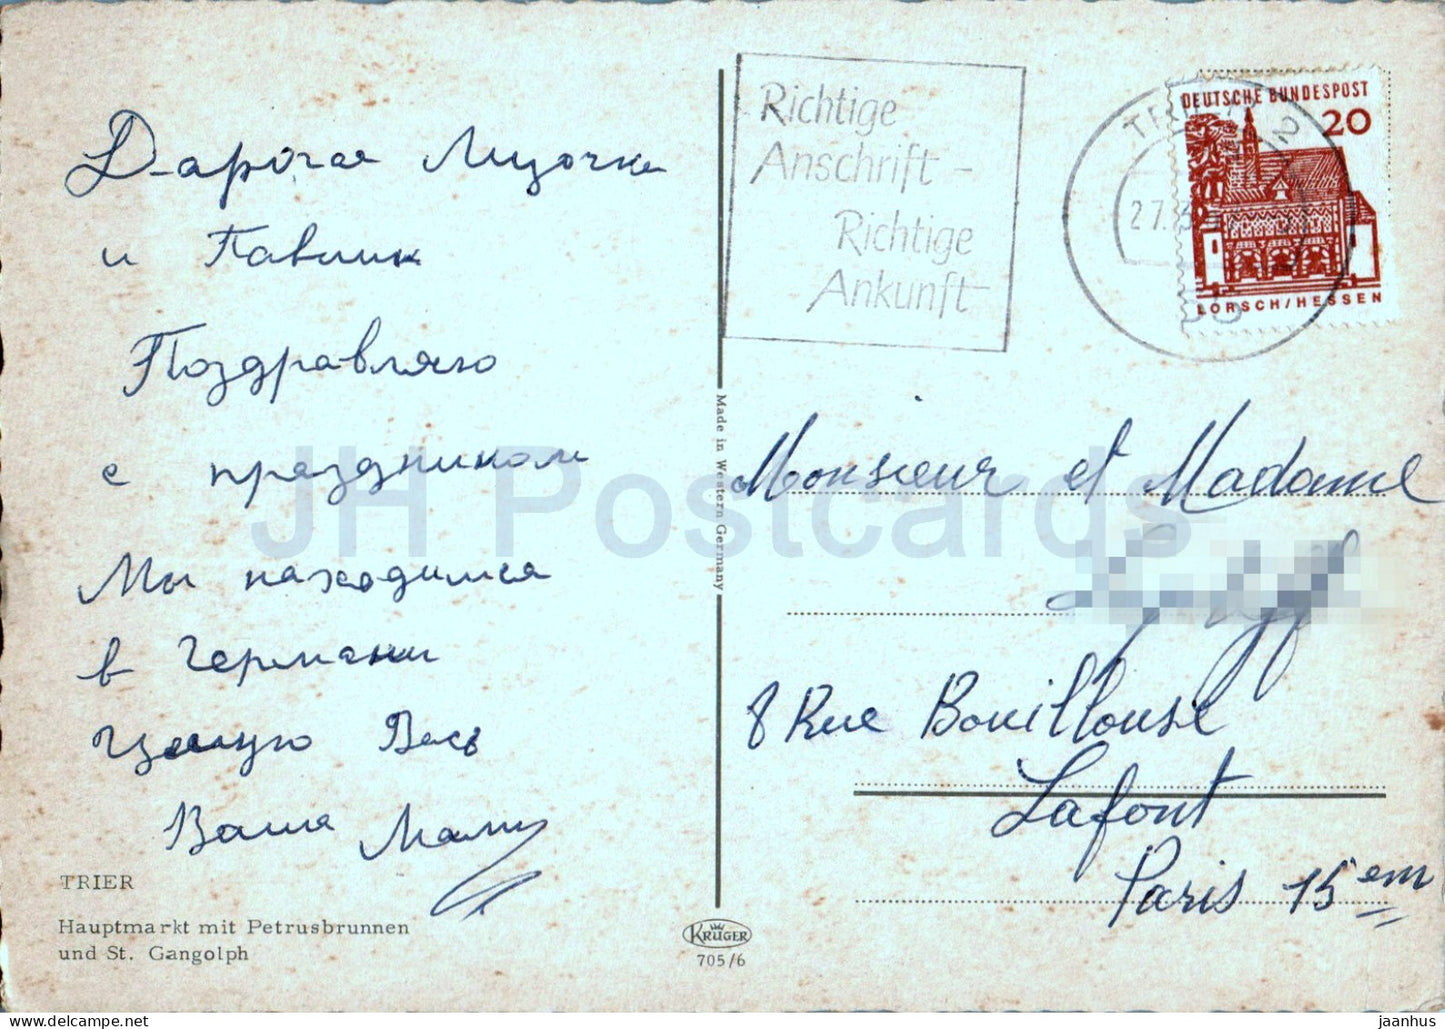 Дарогая Люзочка
и Павлик
Поздравляю
с праздником
Мы находимся
в Германии
Целую Вась
Ваша
TRIER
Hauptmarkt mit Petrusbrunnen
und St. Gangolph
Made in Western Germany
KRÜGER
705/6
Richtige
Anschrift -
Richtige
Ankunft
DEUTSCHE BUNDESPOST
20
LORSCH/HESSEN
27.3
Monsieur et Madame
8 Rue Bouillouse
Lafont
Paris 15em
JH Postcards
https://jaanhus.com
jaanhus